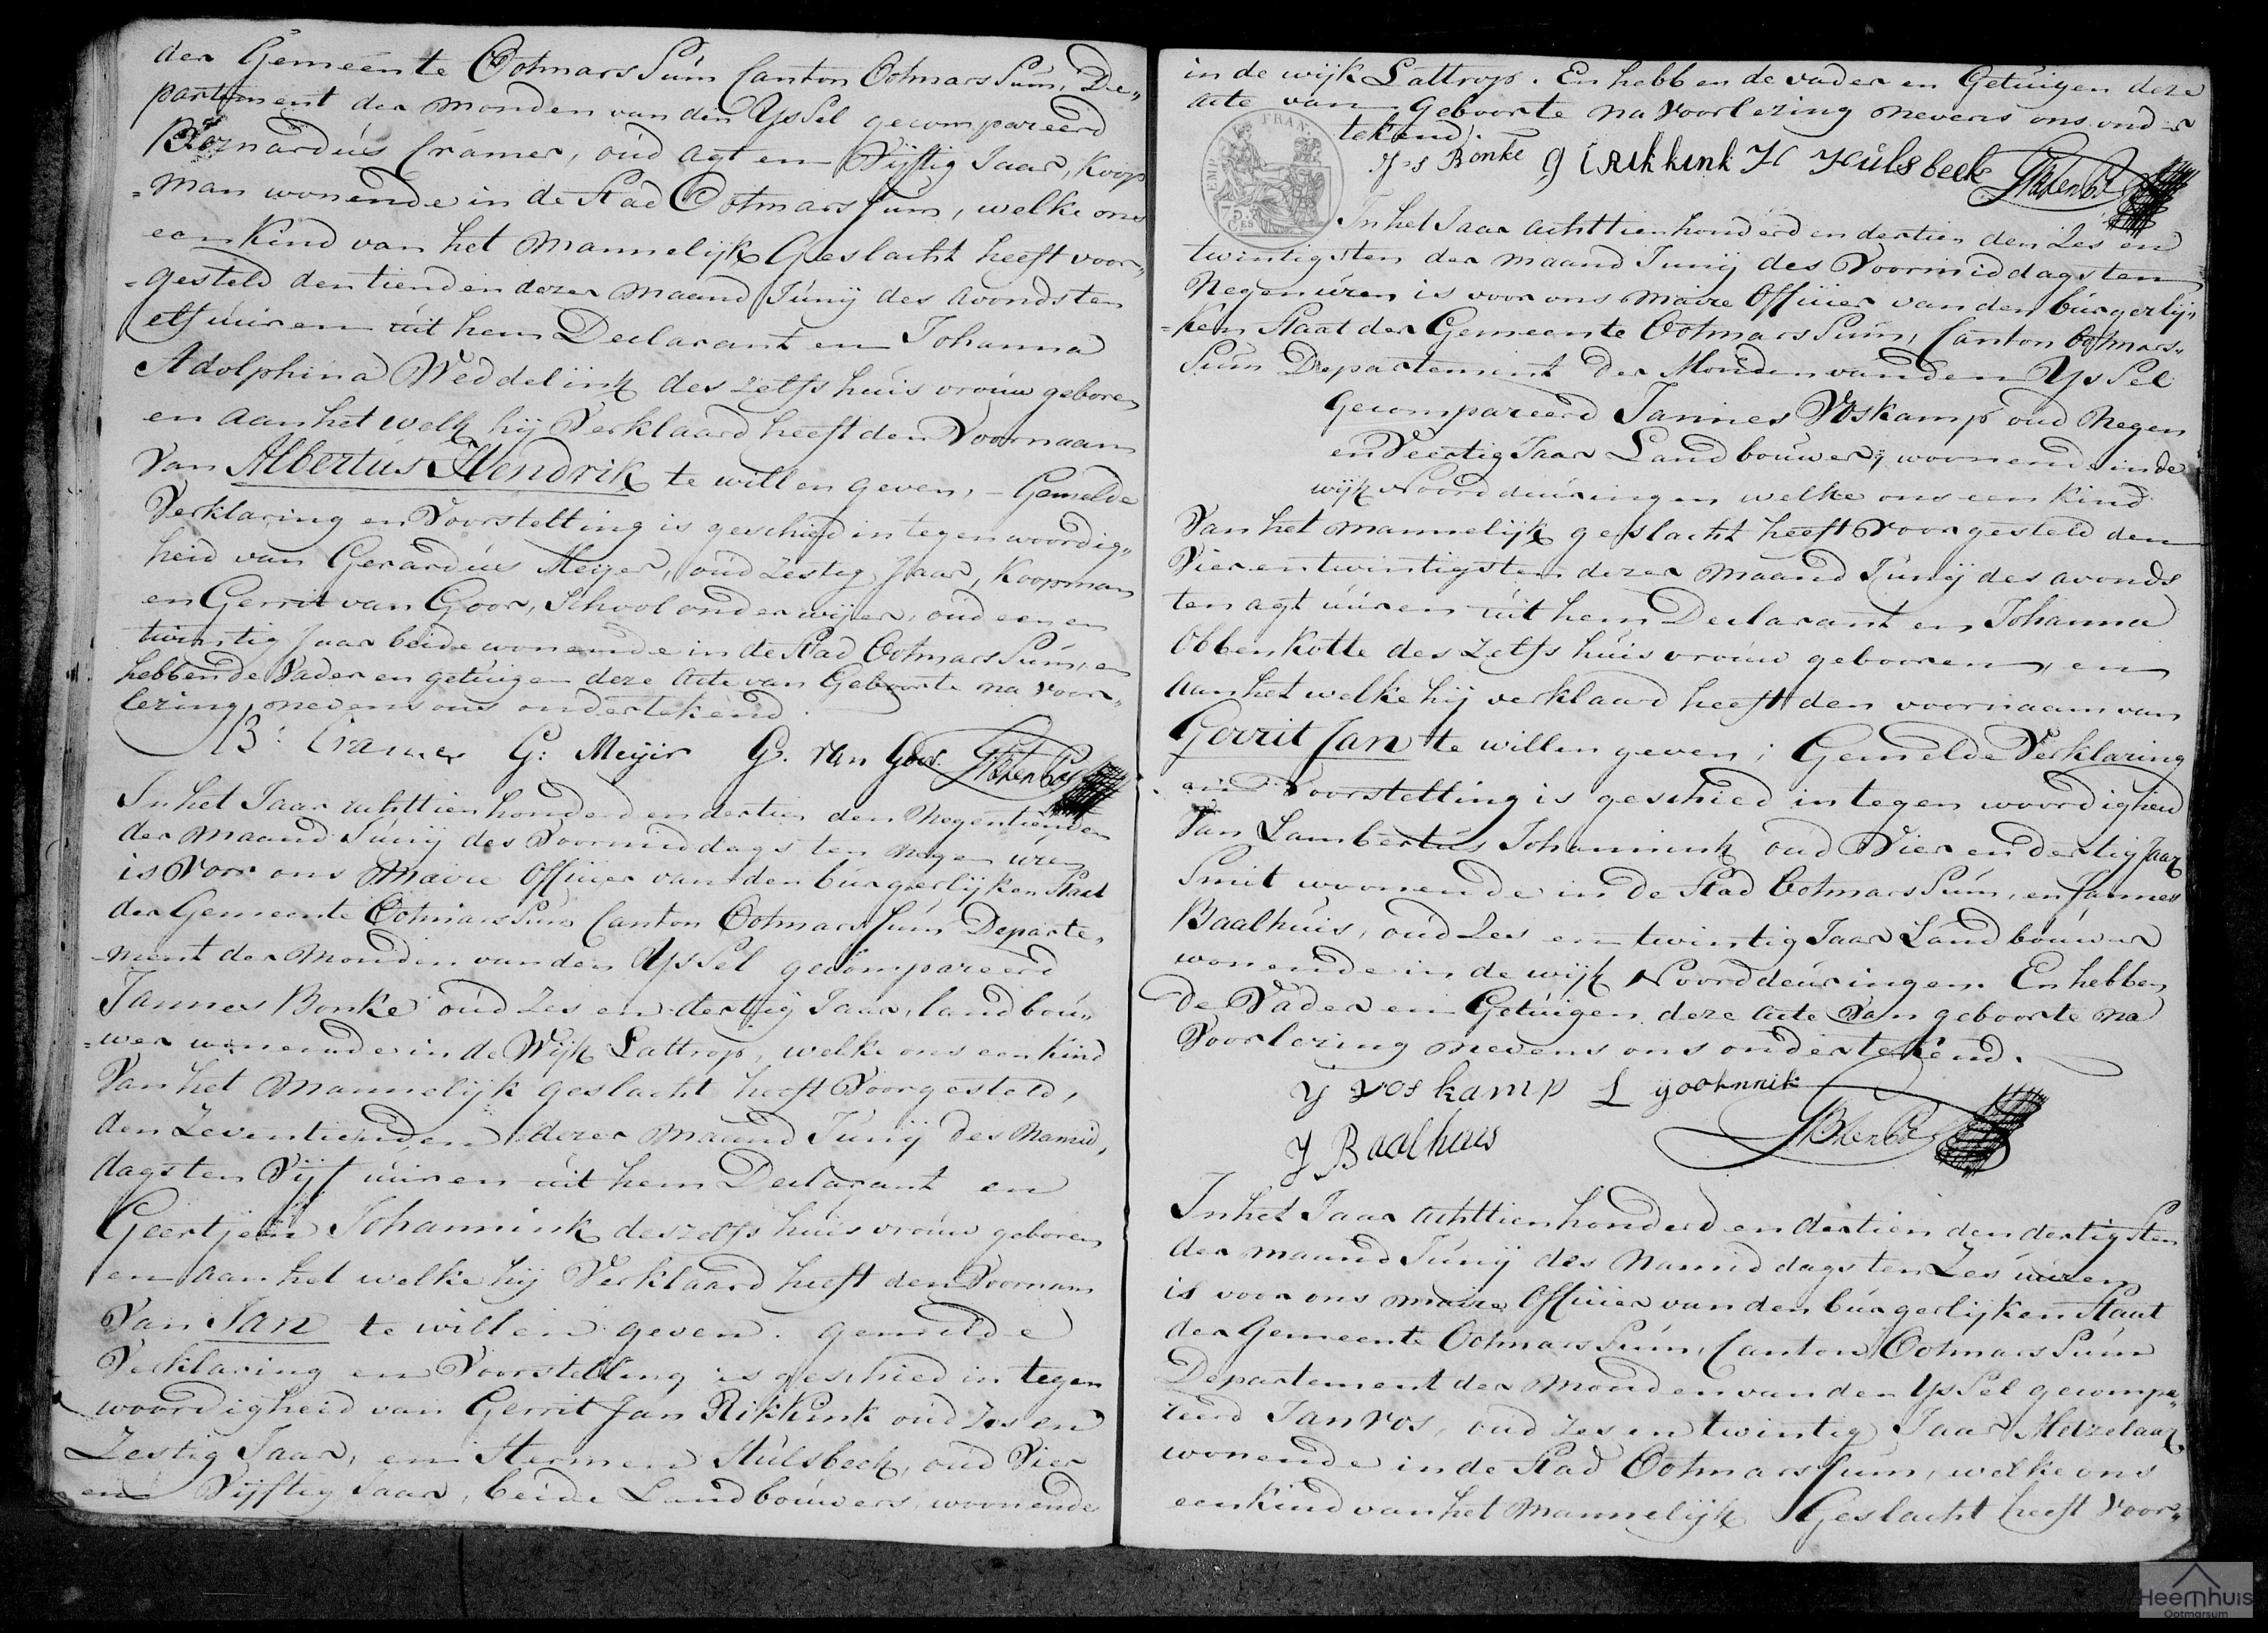 der Gemeente OotmarsSum Canton OotmarsSum, De„
partement der Monden van den YsSel gecompareerd
Bernardús Cramer, oúd Agt en Vijftig Jaar, Koop
=man wonende in de Stad OotmarsSum, welke ons
een Kind van het Mannelijk Geslacht heeft voor„
=gesteld den tienden dezer maand Júnij des avonds ten
elf úúren úit hem Declarant en Johanna
Adolphina Weddelink des zelfs húis vroúw geboren
en aan het welk hij Verklaard heeft den Voornaam
Van Albertús Hendrik te willen geven, – Gemelde
Verklaring en Voorstelling is geschied in tegenwoordig„
heid van Gerardús Meijer, oúd Zestig Jaar, Koopman
en Gerrit van Goor, School onderwijzer, oúd een en
twintig Jaar beide wonende in de Stad OotmarsSúm, en
hebben de Vader en getúigen deze Acte van Geboorte na voor„
lezing nevens ons ondertekend.
B: Cramer G: Meijir G. van Goor
In het Jaar achttienhonderd en dertien den Negentienden
der Maand Júnij des Voormiddags ten negen úren
is Voor ons Maire Officier van den búrgerlijken Staat
der Gemeente OotmarsSúm Canton OotmarsSúm Departe„
ment der Monden van den YsSel gecompareerd
Jannes Bonke oúd Zes en dertig Jaar, landboú„
=wer wonende in de Wijk Lattrop, welke ons een kind
Van het Mannelijk geslacht heeft Voorgesteld,
den Zeventienden dezer Maand Júnij des Namid„
dags ten Vijf úúren úit hem Declarant en
Geertjen Johannink deszelfs húis vroúw geboren
en aan het welke hij Verklaard heeft den Voornaam
Van Jan te willen geven. gemelde
Verklaring en Voorstelling is geschied in tegen
woordigheid van Gerrit Jan Rikkink oúd Zes en
Zestig Jaar, en Hermen Húlsbeek, oúd Vier
en Vijftig Jaar, beide Landboúwers, woonende
in de wijk Lattrop. En hebben de vader en Getúigen deze
acte van Geboorte na voorlezing nevens ons onder
tekend.
EMP. FRAN.
75 CES
J=s Bonke G I Rikkink H Húlsbeek
In het Jaar achttienhonderd en dertien den Zes en
twintigsten der maand Junij des Voormiddags ten
Negen úren is voor ons Maire Officier van den búrgerlij„
=ken Staat der Gemeente OotmarsSúm, Canton Ootmars„
Súm Departement der Monden van den YsSel
gecompareerd Jannes Voskamp oud Negen
en Veertig Jaar Landboúwer, woonende in de
wijk Noorddeúringen welke ons een kind
Van het mannelijk geslacht heeft Voorgesteld den
Vier en twintigsten dezer Maand Júnij des avonds
ten agt úúren úit hem Declarant en Johanna
Obbenkotte des zelfs húis vroúw gebooren, en
aan het welke hij verklaard heeft den voornaam van
Gerrit Jan te willen geven; Gemelde Verklaring
en Voorstelling is geschied in tegen woordigheid
Van Lambertús Johannink oúd Vier en dertig Jaar
Smit woonende in de Stad OotmarsSúm, en Jannes
Baalhúis, oúd Zes en twintig Jaar Landboúwer
wonende in de wijk Noorddeúringen. En hebben
de Vader en Getúigen deze Acte Van geboorte na
Voorlezing nevens ons ondertekend.
J voskamp L Joohnnik
J Baalhuis
In het Jaar achttienhonderd en dertien den dertigsten
der maand Júnij des Namiddags ten Zes úúren
is voor ons maire Officier van den búrgerlijken Staat
der Gemeente OotmarsSúm, Canton OotmarsSúm
Departement der Monden van den YsSel gecompa„
reerd Jan Vos, oúd zes en twintig Jaar Metzelaar
wonende in de Stad OotmarsSúm, welke ons
een Kind van het Mannelijk Geslacht heeft Voor„
Heemhuis
Ootmarsum